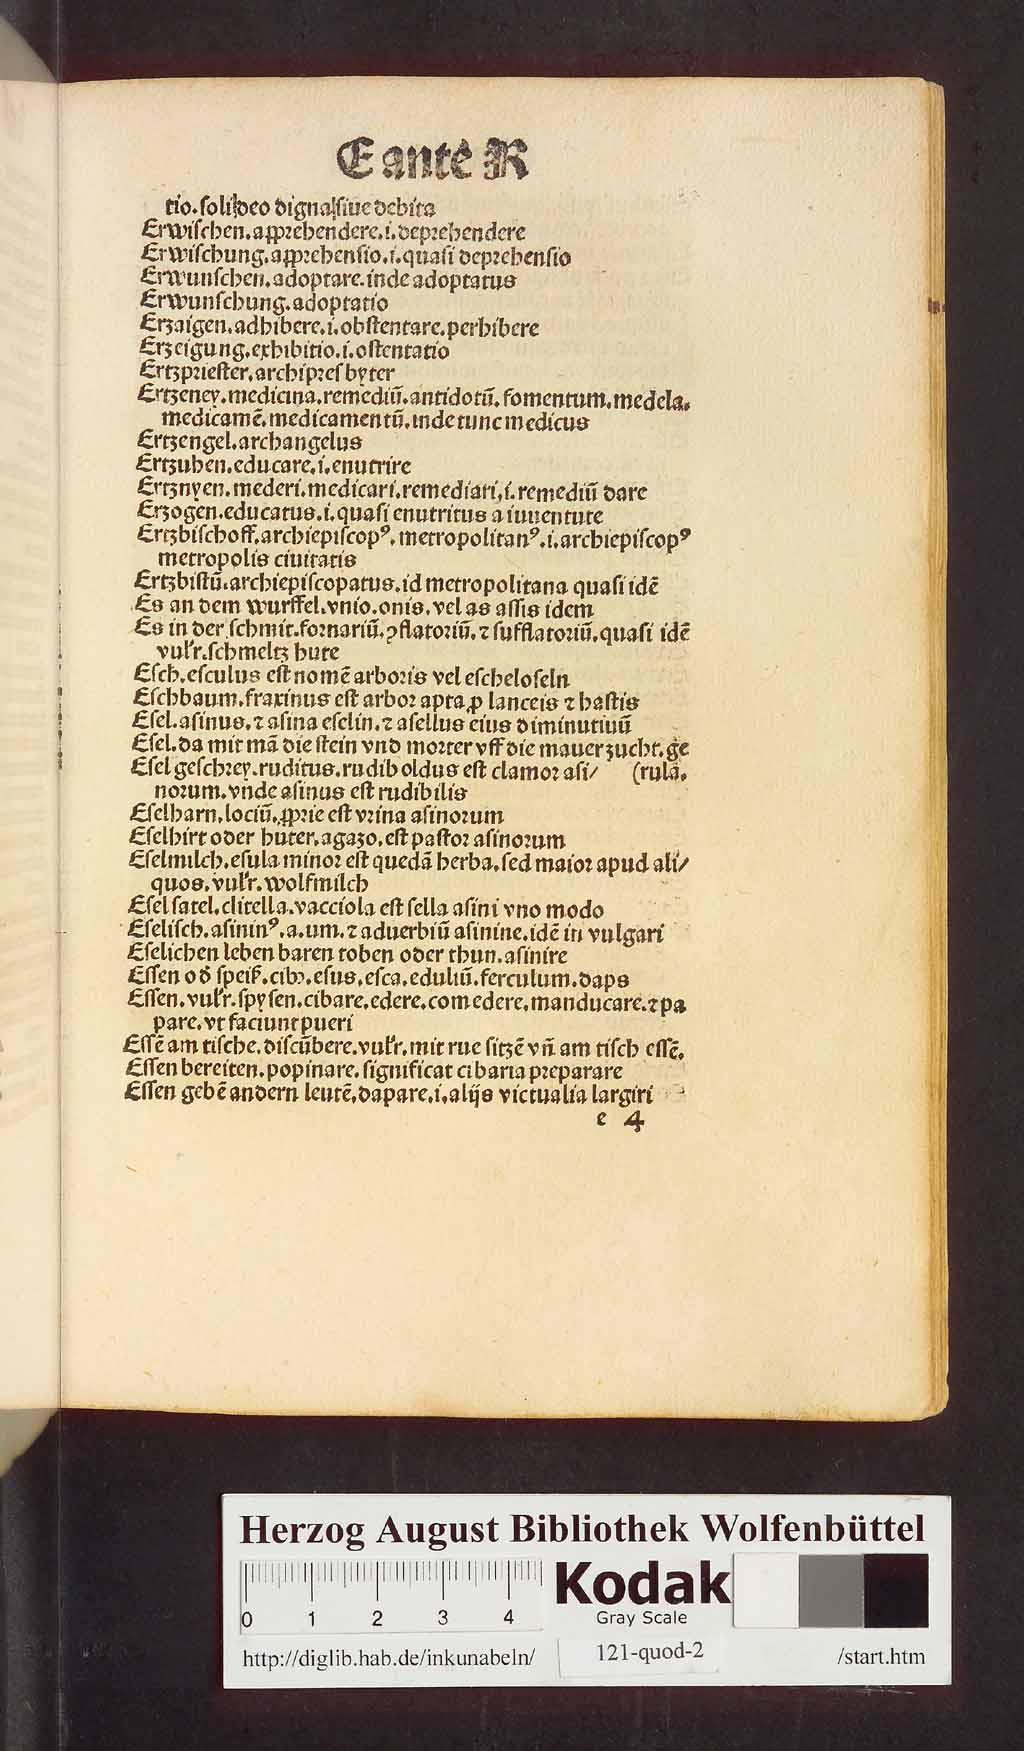 E ante R
tio. soli deo digna siue debita
Erwischen. apprehendere. i. deprehendere
Erwischung. apprehensio. i. quasi deprehensio
Erwunschen. adoptare. inde adoptatus
Erwunschung. adoptatio
Erzaigen. adhibere. i. obstentare. perhibere
Erzeigung. exhibitio. i. ostentatio
Ertzpriester. archipresbyter
Ertzeney. medicina. remediū. antidotū. fomentum. medela.
medicamē. medicamentū. inde tunc medicus
Ertzengel. archangelus
Ertzuhen. educare. i. enutrire
Ertznyen. mederi. medicari. remediari, i. remediū dare
Erzogen. educatus. i. quasi enutritus a iuuentute
Ertzbischoff. archiepiscopꝰ. metropolitanꝰ. i. archiepiscopꝰ
metropolis ciuitatis
Ertzbistū. archiepiscopatus. id metropolitana quasi idē
Es an dem wurffel. vnio. onis. vel as assis idem
Es in der schmit. fornariū. ꝯflatoriū. ⁊ sufflatoriū. quasi idē
vulr. schmeltz hute
Esch. esculus est nomē arboris vel escheloseln
Eschbaum. fraxinus est arbor apta ꝓ lanceis ⁊ hastis
Esel. asinus. ⁊ asina eselin. ⁊ asellus eius diminutiuū
Esel. da mit mā die stein vnd morter vff die mauer zucht. ge
Esel geschrey. ruditus. rudiboldus est clamor asi/ (rulā.
norum. vnde asinus est rudibilis
Eselharn. lociū. ꝓprie est vrina asinorum
Eselhirt oder huter. agazo. est pastor asinorum
Eselmilch. esula minor est quedā herba. sed maior apud ali/
quos. vulr. wolfmilch
Esel satel. clitella. vacciola est sella asini vno modo
Eselisch. asininꝰ. a. um. ⁊ aduerbiū asinine. idē in vulgari
Eselichen leben baren toben oder thun. asinire
Essen od̕ speiß. cibꝰ. esus. esca. eduliū. ferculum. daps
Essen. vulr. spysen. cibare. edere. comedere. manducare. ⁊ pa
pare. vt faciunt pueri
Essē am tische. discūbere. vulr. mit rue sitzē vñ am tisch essē.
Essen bereiten. popinare. significat cibaria preparare
Essen gebē andern leutē. dapare. i. alijs victualia largiri
e 4
Herzog August Bibliothek Wolfenbüttel
0 1 2 3 4
Kodak
Gray Scale
http://diglib.hab.de/inkunabeln/ 121-quod-2 /start.htm